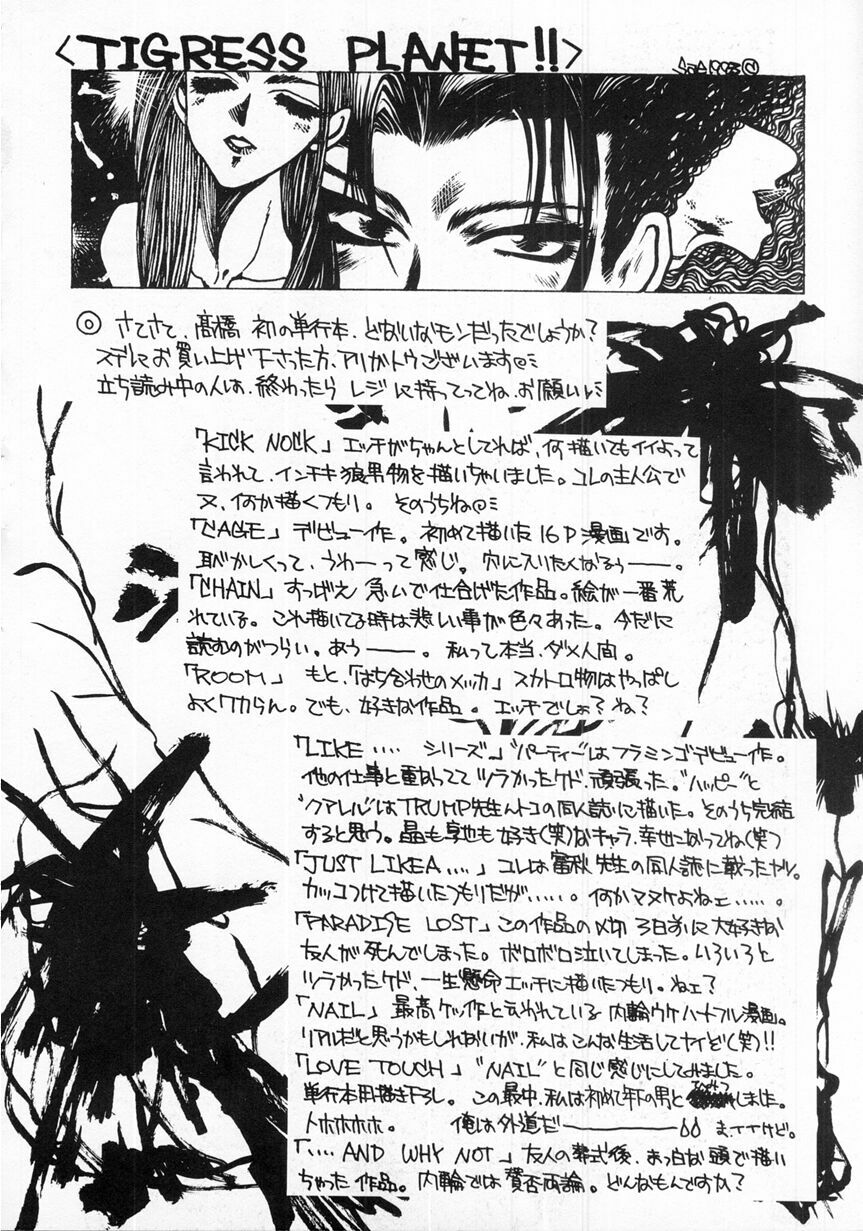 <TIGRESS PLANET!!>
◎ さてさて、高橋 初の単行本、どないなモンだったでしょうか?
スデにお買い上げ下さった方、アリガトウございます
立ち読み中の人は、終わったら レジに持ってってね、お願い
「KICK NOCK」 エッチがちゃんとしてれば、何描いてもイイよって
言われて、インチキ狼男物を描いちゃいました。コレの主人公で
又、何か描くつもり。 そのうちね
「CAGE」 デビュー作。 初めて描いた 16P 漫画です。
恥かしくって、うわーって感じ。穴に入りたくなるぅ――。
「CHAIN」 すっげえ 急いで仕上げた作品。絵が一番荒
れている。 これ描いてる時は悲しい事が色々あった。今だに
読むのがつらい。あぅ――。 私って本当、ダメ人間。
「ROOM」 もと、「はち合わせのメッカ」 スカトロ物はやっぱし
よくワカらん。でも、好きな作品。エッチでしょ?ね?
「LIKE‥‥ シリーズ」"パーティー"はフラミンゴデビュー作。
他の仕事と重ねててツラかったケド、頑張った。"ハッピー"と
"クアレル"はTRUMP先生んトコの同人誌に描いた。そのうち完結
すると思う。晶も享也も好き(笑)なキャラ、幸せになってね(笑)
「JUST LIKE A‥‥」 コレは 富秋 先生の同人誌に載ったヤツ。
カッコつけて描いたつもりだが‥‥‥。 何かマヌケよねェ‥‥‥。
「PARADISE LOST」 この作品の〆切 3日前に 大好きな
友人が 死んでしまった。ボロボロ泣いてしまった。いろいろと
ツラかったケド、一生懸命 エッチに描いたつもり。ねェ?
「NAIL」 最高ケッ作と云われている 内輪ウケハートフル漫画。
リアルだと思うかもしれないが、私はこんな生活してナイぞ(笑)!!
「LOVE TOUCH」 "NAIL"と同じ感じにしてみました。
単行本用描き下ろし。 この最中、私は初めて年下の男と しました。
ホホホホ。 俺は外道だ――― ま、イイけど。
「‥‥AND WHY NOT」 友人の葬式後、まっ白な頭で描い
ちゃった 作品。 内輪では 賛否両論。どんなもんですか?